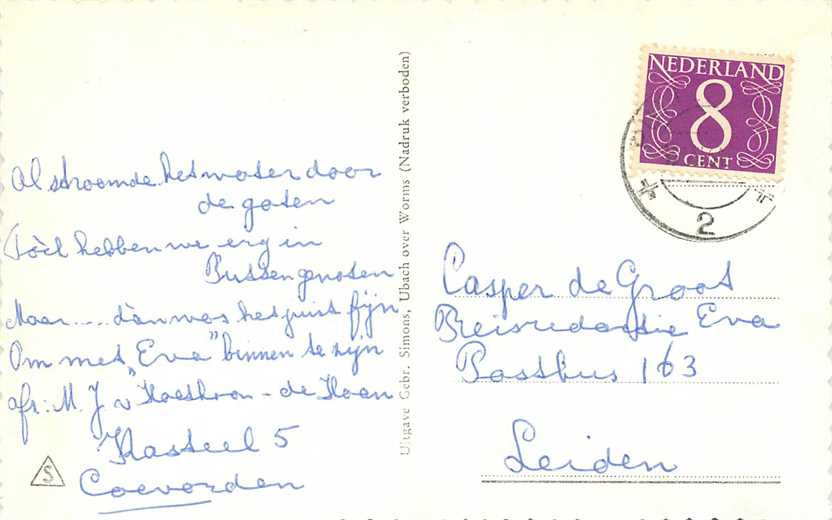 Al stroomde het water door
de goten
Tòch hebben we erg in
Bussen genoten
Maar .... dàn was het juist fijn
Om met „Eva” binnen te zijn
afz: M. J. v - de Haan
Kasteel 5
Coevorden
Uitgave Gebr. Simons, Ubach over Worms (Nadruk verboden)
S
NEDERLAND
8
CENT
2
Casper de Groot
Breiredactie Eva
Postbus 163
Leiden